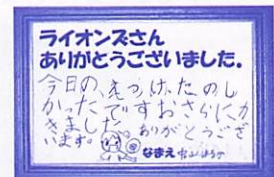 ライオンズさん
ありがとうございました。
今日の、えつけ、たのし
かったですおさらにか
きました
ありがとうござ
います。
なまえ